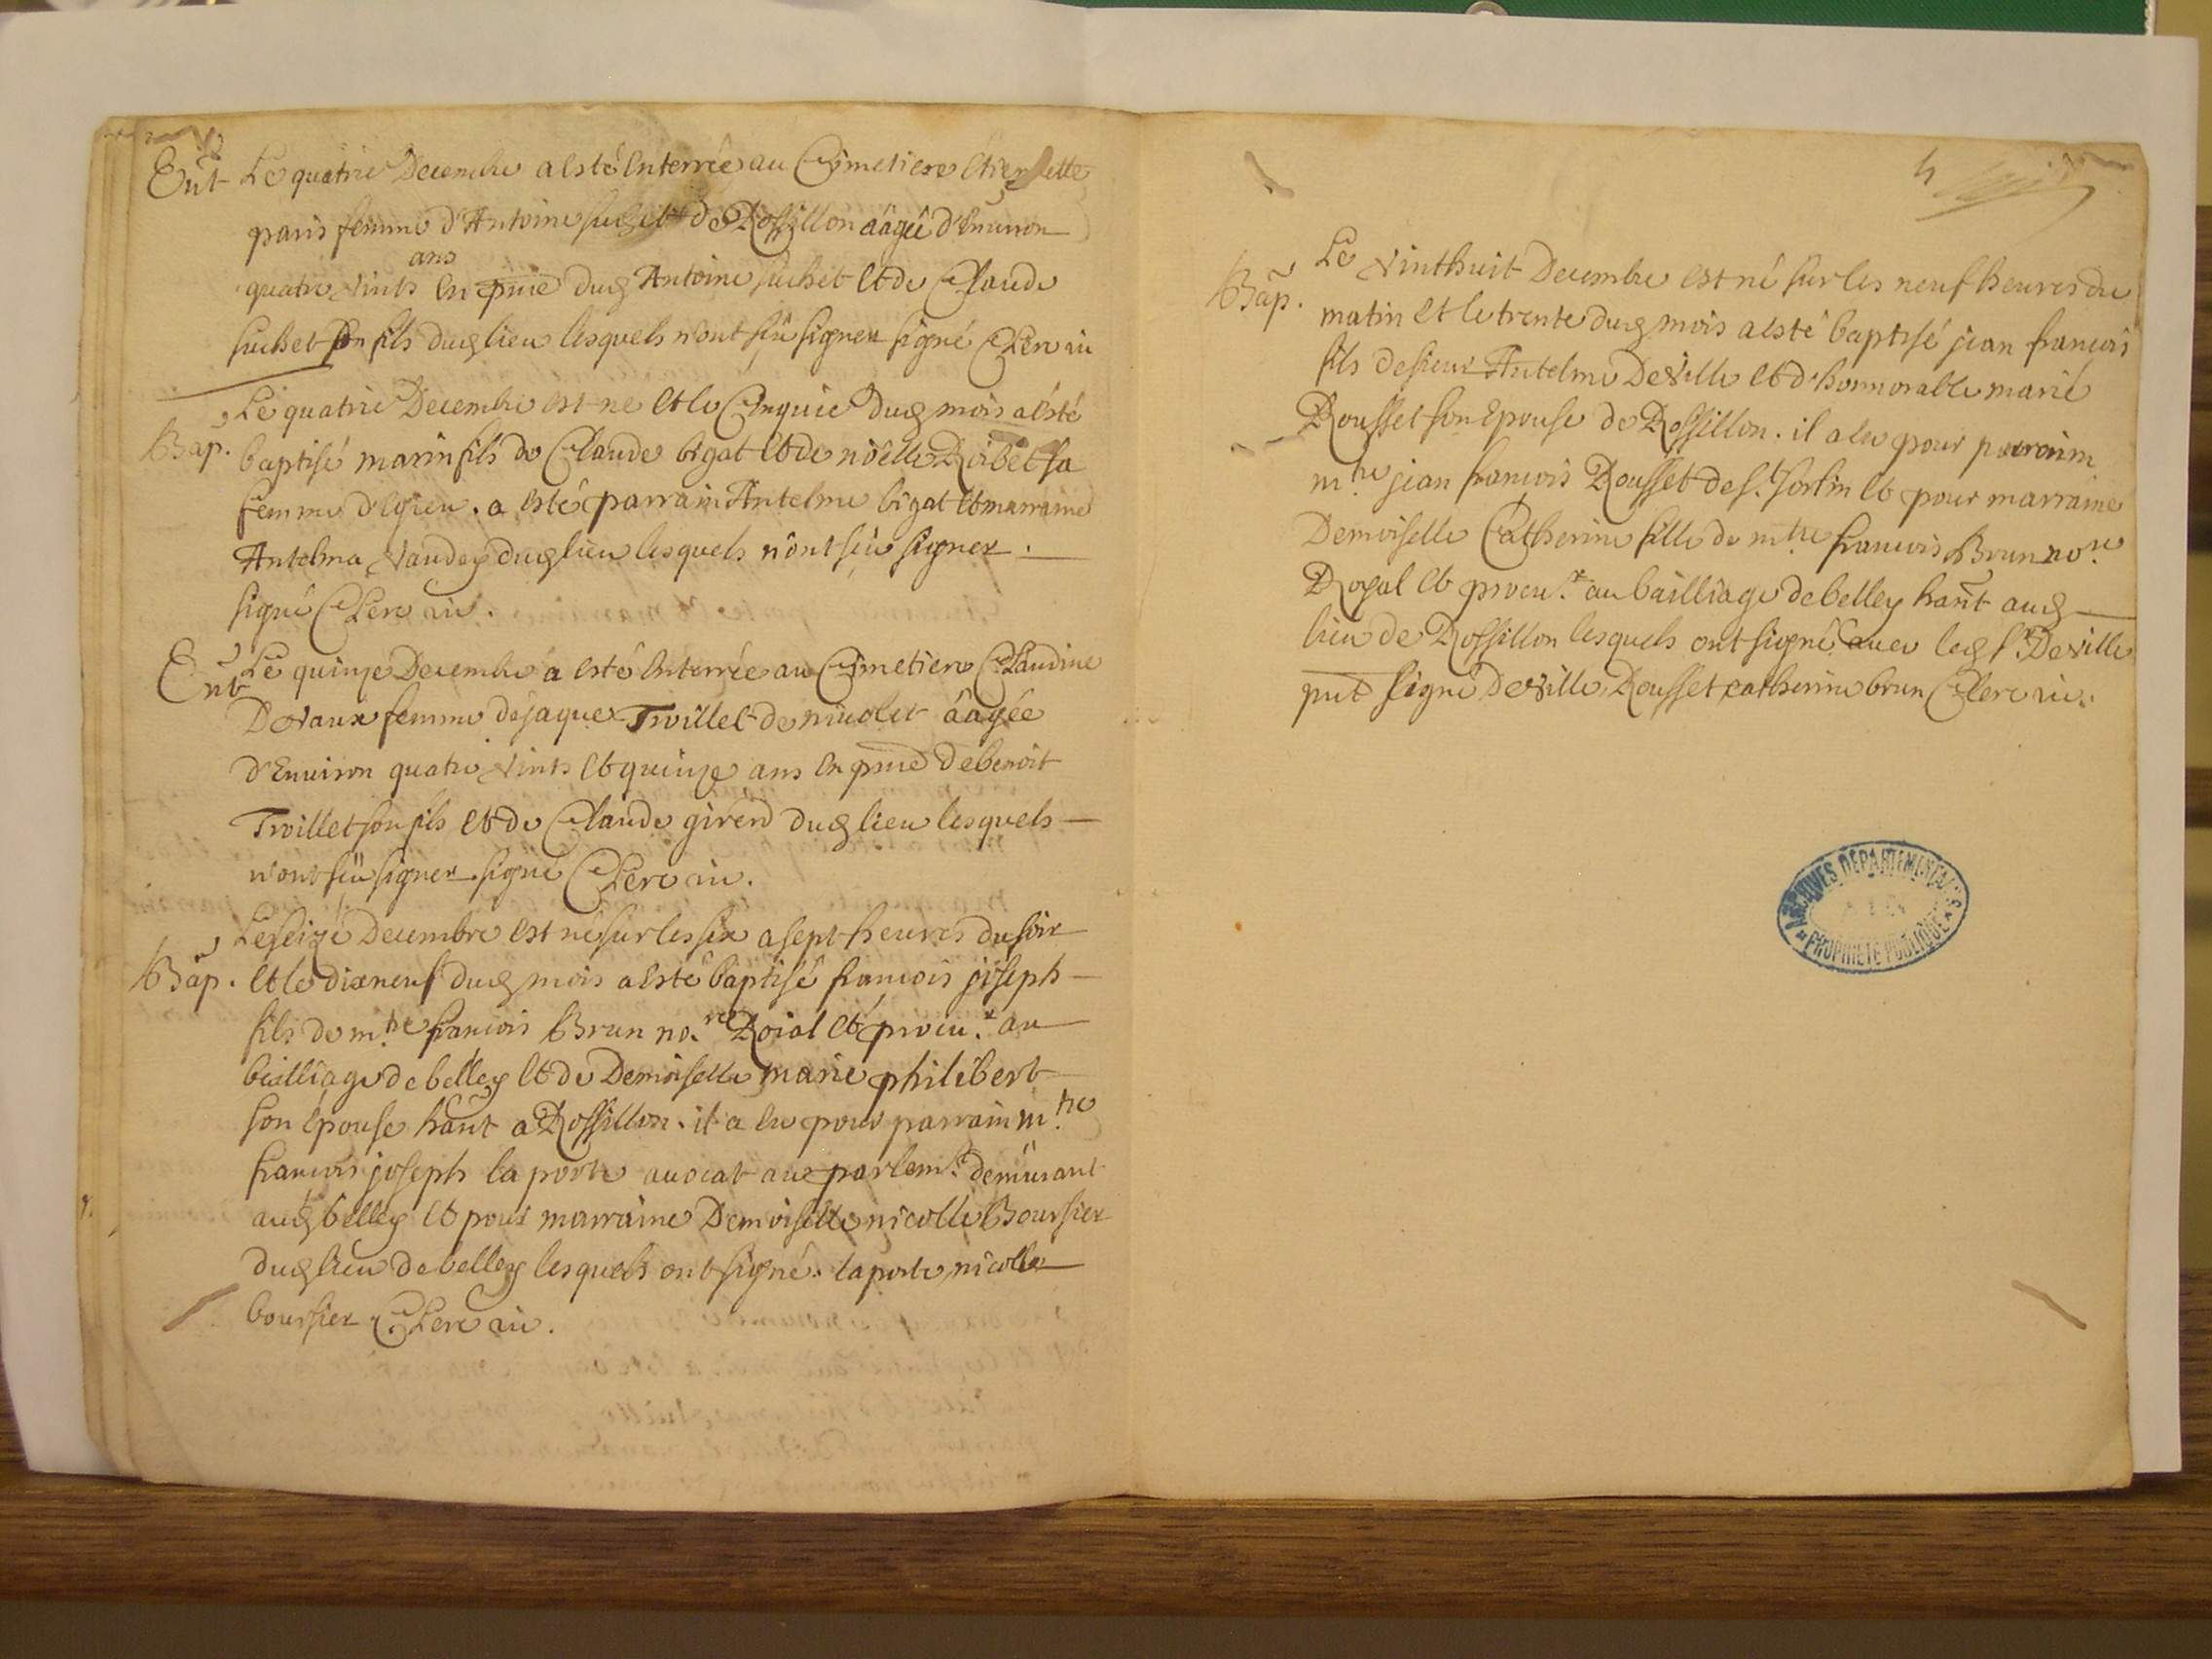 Ent Le quatrie Decembre a esté Enterrée au Cimetiere Etiennette
paris femme d'Antoine suchet de Rossillon aagée d'Environ
ans
quatre vints En pnce dud Antoine suchet Et de Claude
suchet son fils dud lieu lesquels n'ont sçu signer signé Clerc vic
Bap. Le quatrie Decembre est ne Et le Cinquie dud mois a esté
baptisé marin fils de Claude bigat Et de noelle Roibet sa
femme d'Egieu. a esté parrain Antelme bigat Et marraine
Antelma Vandey dud lieu lesquels n'ont sçu signer.
signé Clerc vic.
Ent Le quinze Decembre a esté Enterrée au Cimetiere Claudine
Devaux femme de jaque Troillet de aagée
d'Environ quatre vints Et quinze ans En pnce de benoit
Troillet son fils Et de Claude girerd dud lieu lesquels
n'ont sçu signer signé Clerc vic.
Bap. Le seize Decembre est né sur les six a sept heures du soir
Et le dixneuf dud mois a esté baptisé francois joseph
fils de mtre francois Brun nore Roial Et procur au
bailliage de belley Et de Demoiselle marie philibert
son épouse hant a Rossillon. il a eu pour parrain mtre
francois joseph la porte avocat au parlemt demurant
aud belley Et pour marraine Demoiselle nicolle Boursier
dud lieu de belley lesquels ont signé. laporte, nicolle
boursier Clerc vic.
4
Bap. Le vinthuit Decembre est né sur les neuf heures du
matin Et le trente dud mois a esté baptisé jean francois
fils de sieur Antelme Deville Et d'honnorable marie
Rousset son Epouse de Rossillon. il a eu pour parrain
mtre jean francois Rousset de st sorlin Et pour marraine
Demoiselle Catherine fille de mtre francois Brun nore
Royal Et procur au bailliage de belley hant aud
lieu de Rossillon lesquels ont signé avec led sr Deville
pnt signé Deville, Rousset, catherine brun Clerc vic.
ARCHIVES DEPARTEMENTALES
AIN
PROPRIETE PUBLIQUE